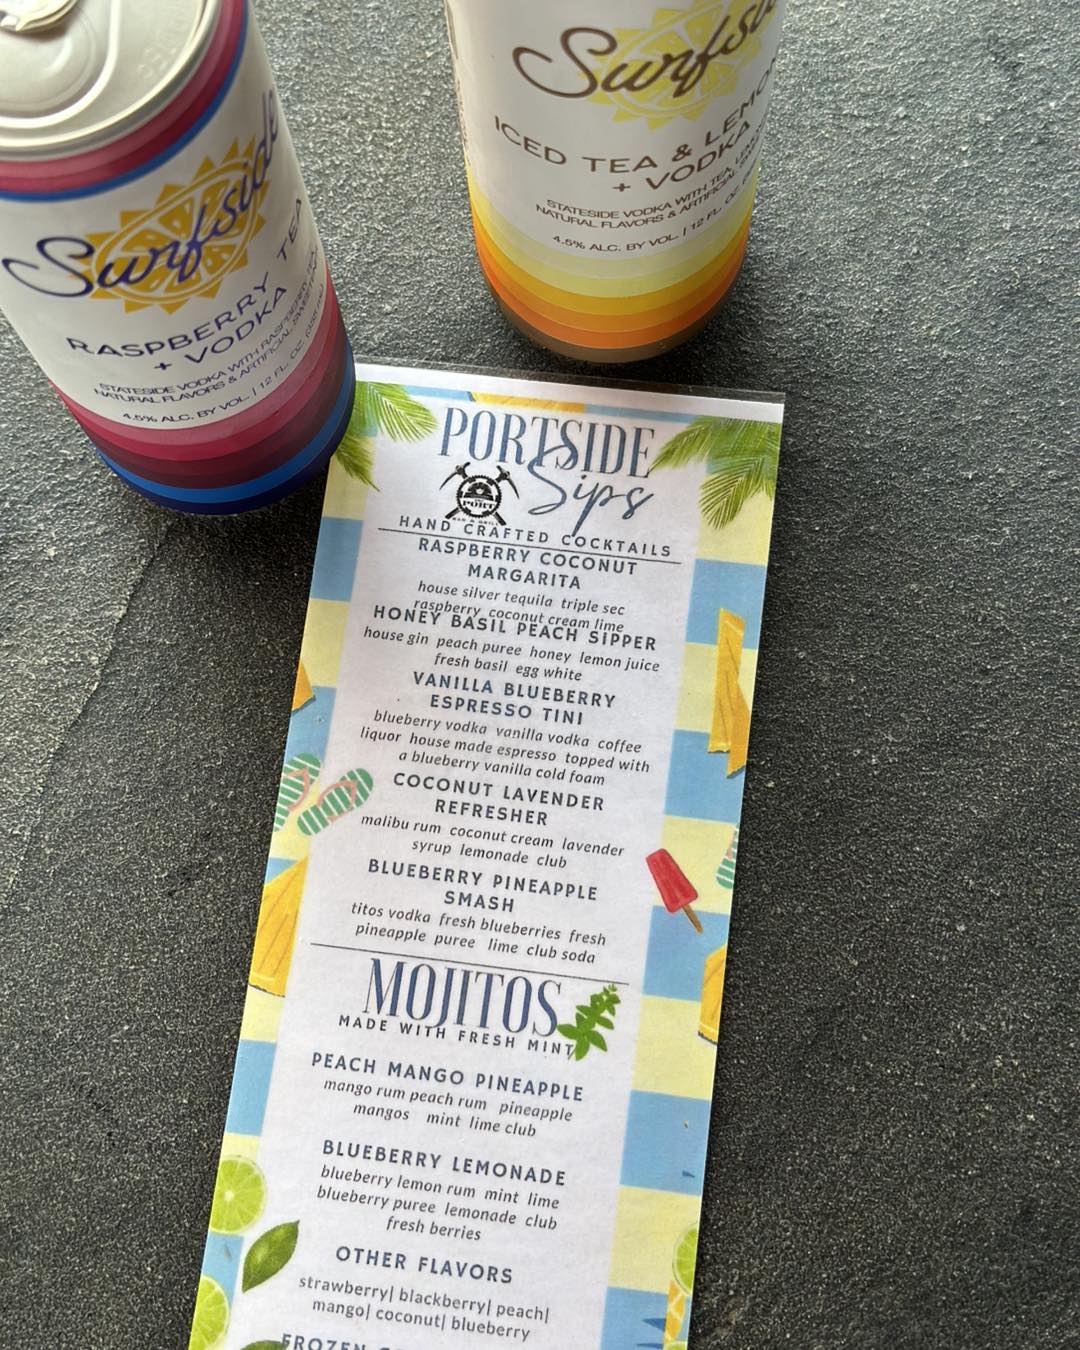 Surfside
RASPBERRY TEA
+ VODKA
STATESIDE VODKA WITH RASPBERRY
NATURAL FLAVORS & ARTIFICIAL
4.5% ALC. BY VOL. | 12 FL. OZ.
Surfsi
ICED TEA & LEMO
+ VODKA
STATESIDE VODKA WITH TEA,
NATURAL FLAVORS & ARTIFICIAL
4.5% ALC. BY VOL. | 12 FL. OZ.
PORTSIDE
Sips
PORT
BAR & GRILL
HAND CRAFTED COCKTAILS
RASPBERRY COCONUT
MARGARITA
house silver tequila triple sec
raspberry coconut cream lime
HONEY BASIL PEACH SIPPER
house gin peach puree honey lemon juice
fresh basil egg white
VANILLA BLUEBERRY
ESPRESSO TINI
blueberry vodka vanilla vodka coffee
liquor house made espresso topped with
a blueberry vanilla cold foam
COCONUT LAVENDER
REFRESHER
malibu rum coconut cream lavender
syrup lemonade club
BLUEBERRY PINEAPPLE
SMASH
titos vodka fresh blueberries fresh
pineapple puree lime club soda
MOJITOS
MADE WITH FRESH MINT
PEACH MANGO PINEAPPLE
mango rum peach rum pineapple
mangos mint lime club
BLUEBERRY LEMONADE
blueberry lemon rum mint lime
blueberry puree lemonade club
fresh berries
OTHER FLAVORS
strawberry| blackberry| peach|
mango| coconut| blueberry
FROZEN